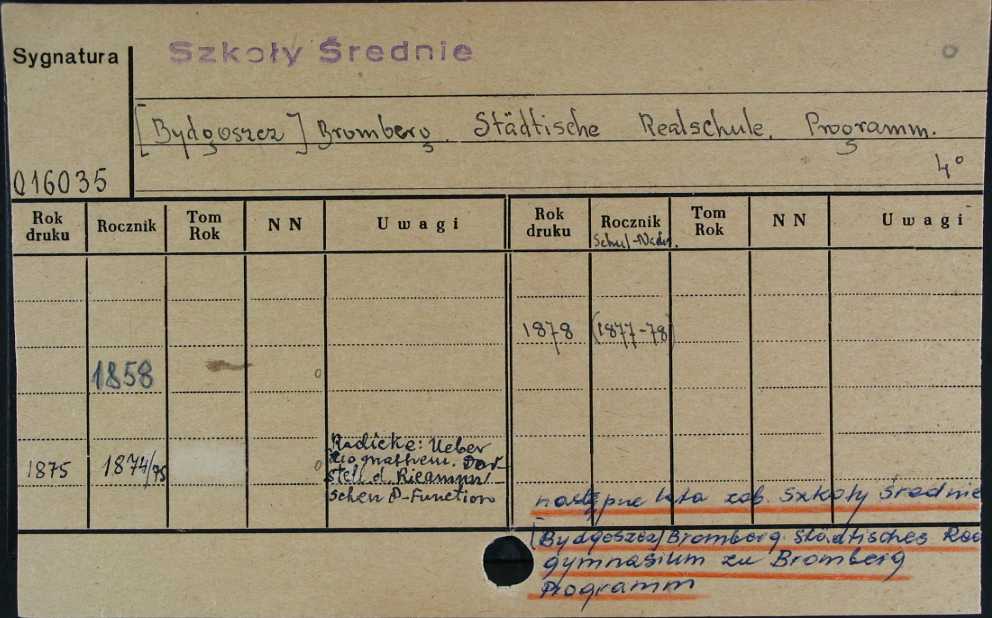 Sygnatura
Szkoły Średnie
[Bydgoszcz] Bromberg. Städtische Realschule. Programm.
4°
016035
Rok druku Rocznik Tom Rok N N Uwagi Rok druku Rocznik Tom Rok N N Uwagi
1878 (1877-78)
1858
1875 1874/75
Radicke: Ueber
Darstell. d. Riemann'
schen P-Function
następne lata zob. Szkoły Średnie
[Bydgoszcz] Bromberg Städtisches Rea
gymnasium zu Bromberg
Programm